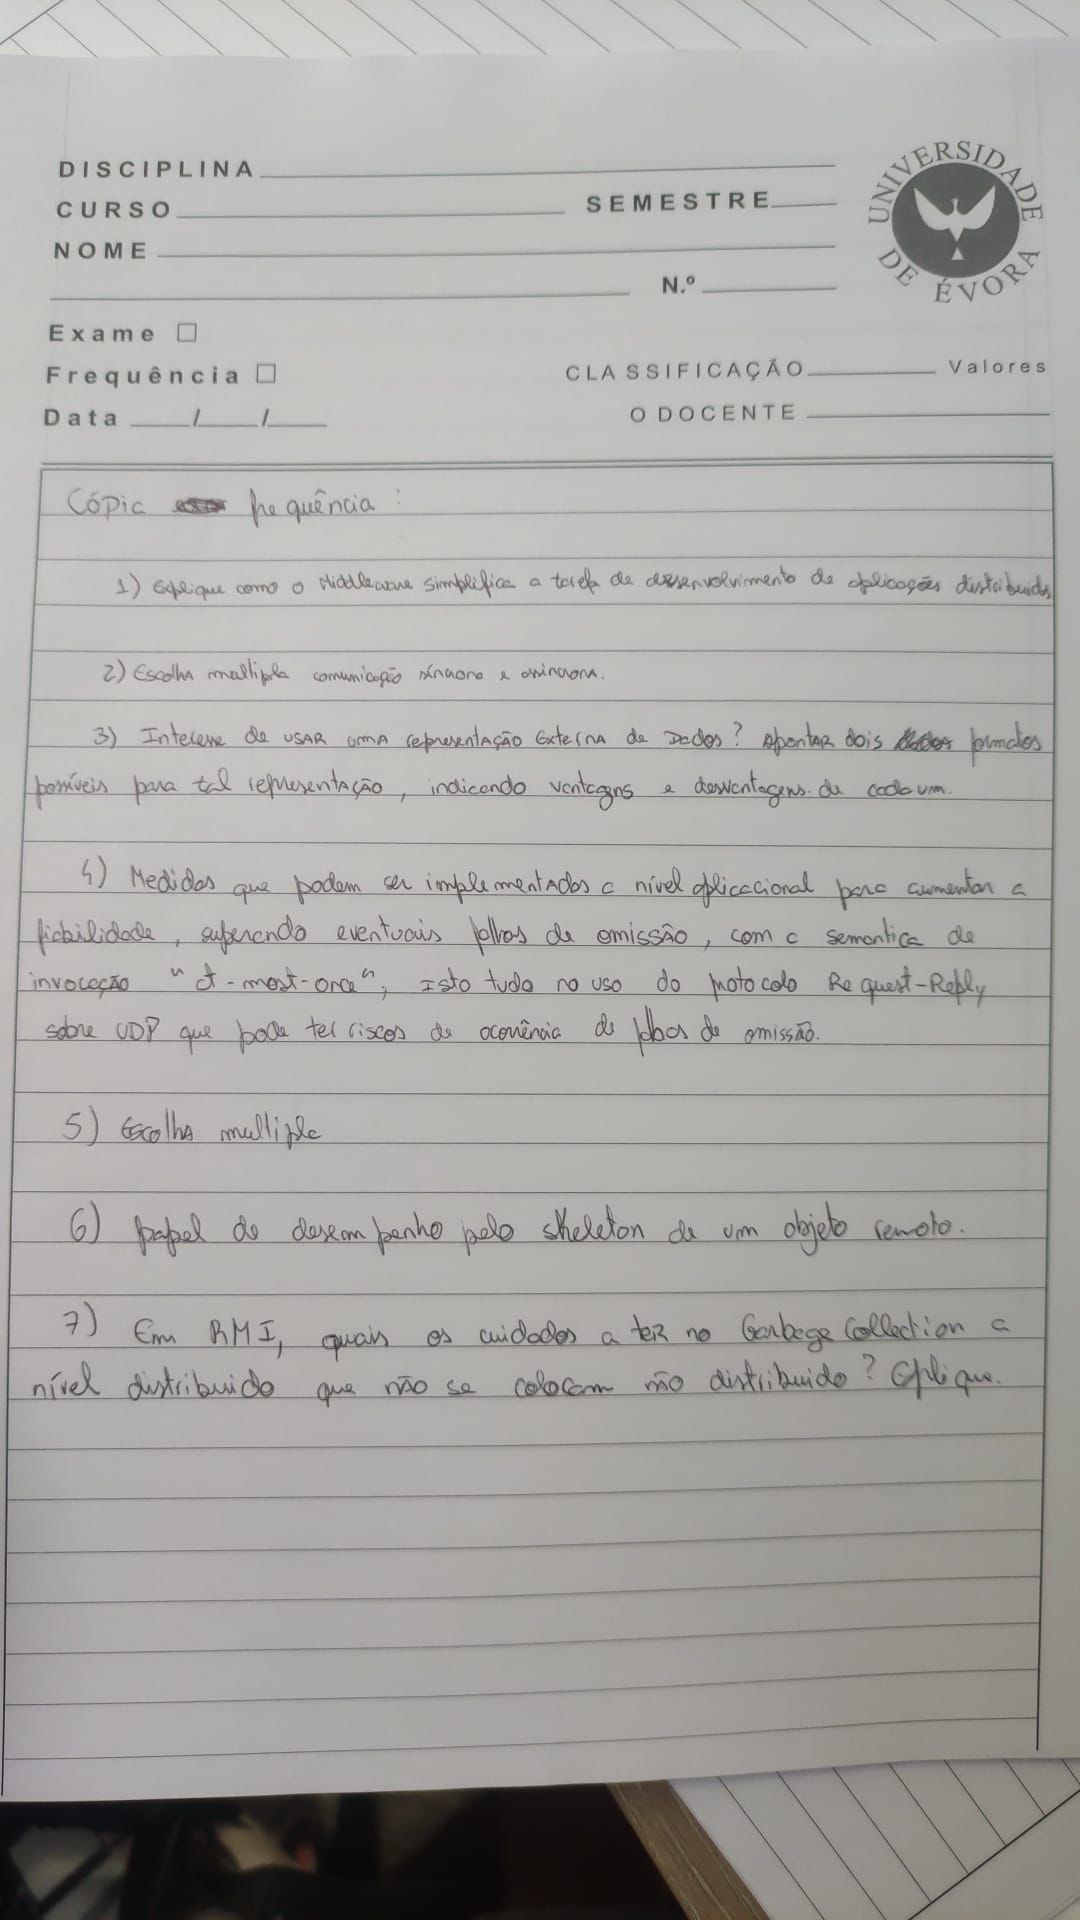 DISCIPLINA
CURSO SEMESTRE
NOME
N.º
UNIVERSIDADE DE ÉVORA
Exame
Frequência
CLASSIFICAÇÃO Valores
Data / /
O DOCENTE
Cópia frequência :
1) Explique como o Middleware simplifica a tarefa de desenvolvimento de aplicações distribuidas
2) Escolha multipla comunicação síncrona e assincrona.
3) Interesse de usar uma representação Externa de Dados? Apontar dois formatos
possíveis para tal representação, indicando vantagens e desvantagens de cada um.
4) Medidas que podem ser implementadas a nível aplicacional para aumentar a
fiabilidade, superando eventuais falhas de omissão, com a semantica de
invocação "at-most-once", Isto tudo no uso do protocolo Request-Reply
sobre UDP que pode ter riscos de ocorrência de falhas de omissão.
5) Escolha multipla
6) papel de desempenho pelo skeleton de um objeto remoto.
7) Em RMI, quais os cuidados a ter no Garbage Collection a
nível distribuido que não se colocam não distribuido? Explique.